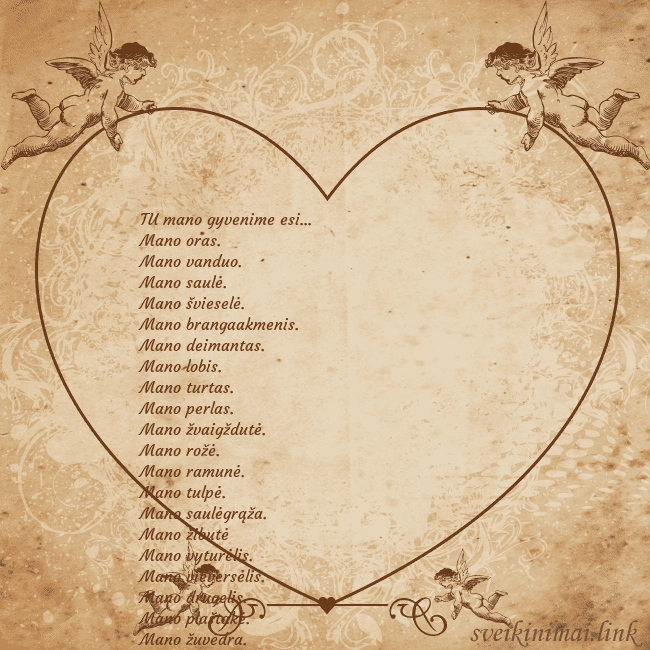 TU mano gyvenime esi...
Mano oras.
Mano vanduo.
Mano saulė.
Mano švieselė.
Mano brangaakmenis.
Mano deimantas.
Mano lobis.
Mano turtas.
Mano perlas.
Mano žvaigždutė.
Mano rožė.
Mano ramunė.
Mano tulpė.
Mano saulėgrąža.
Mano žibutė
Mano vyturėlis.
Mano vieversėlis.
Mano drugelis.
Mano plaštakė.
Mano žuvėdra.
sveikinimai.link